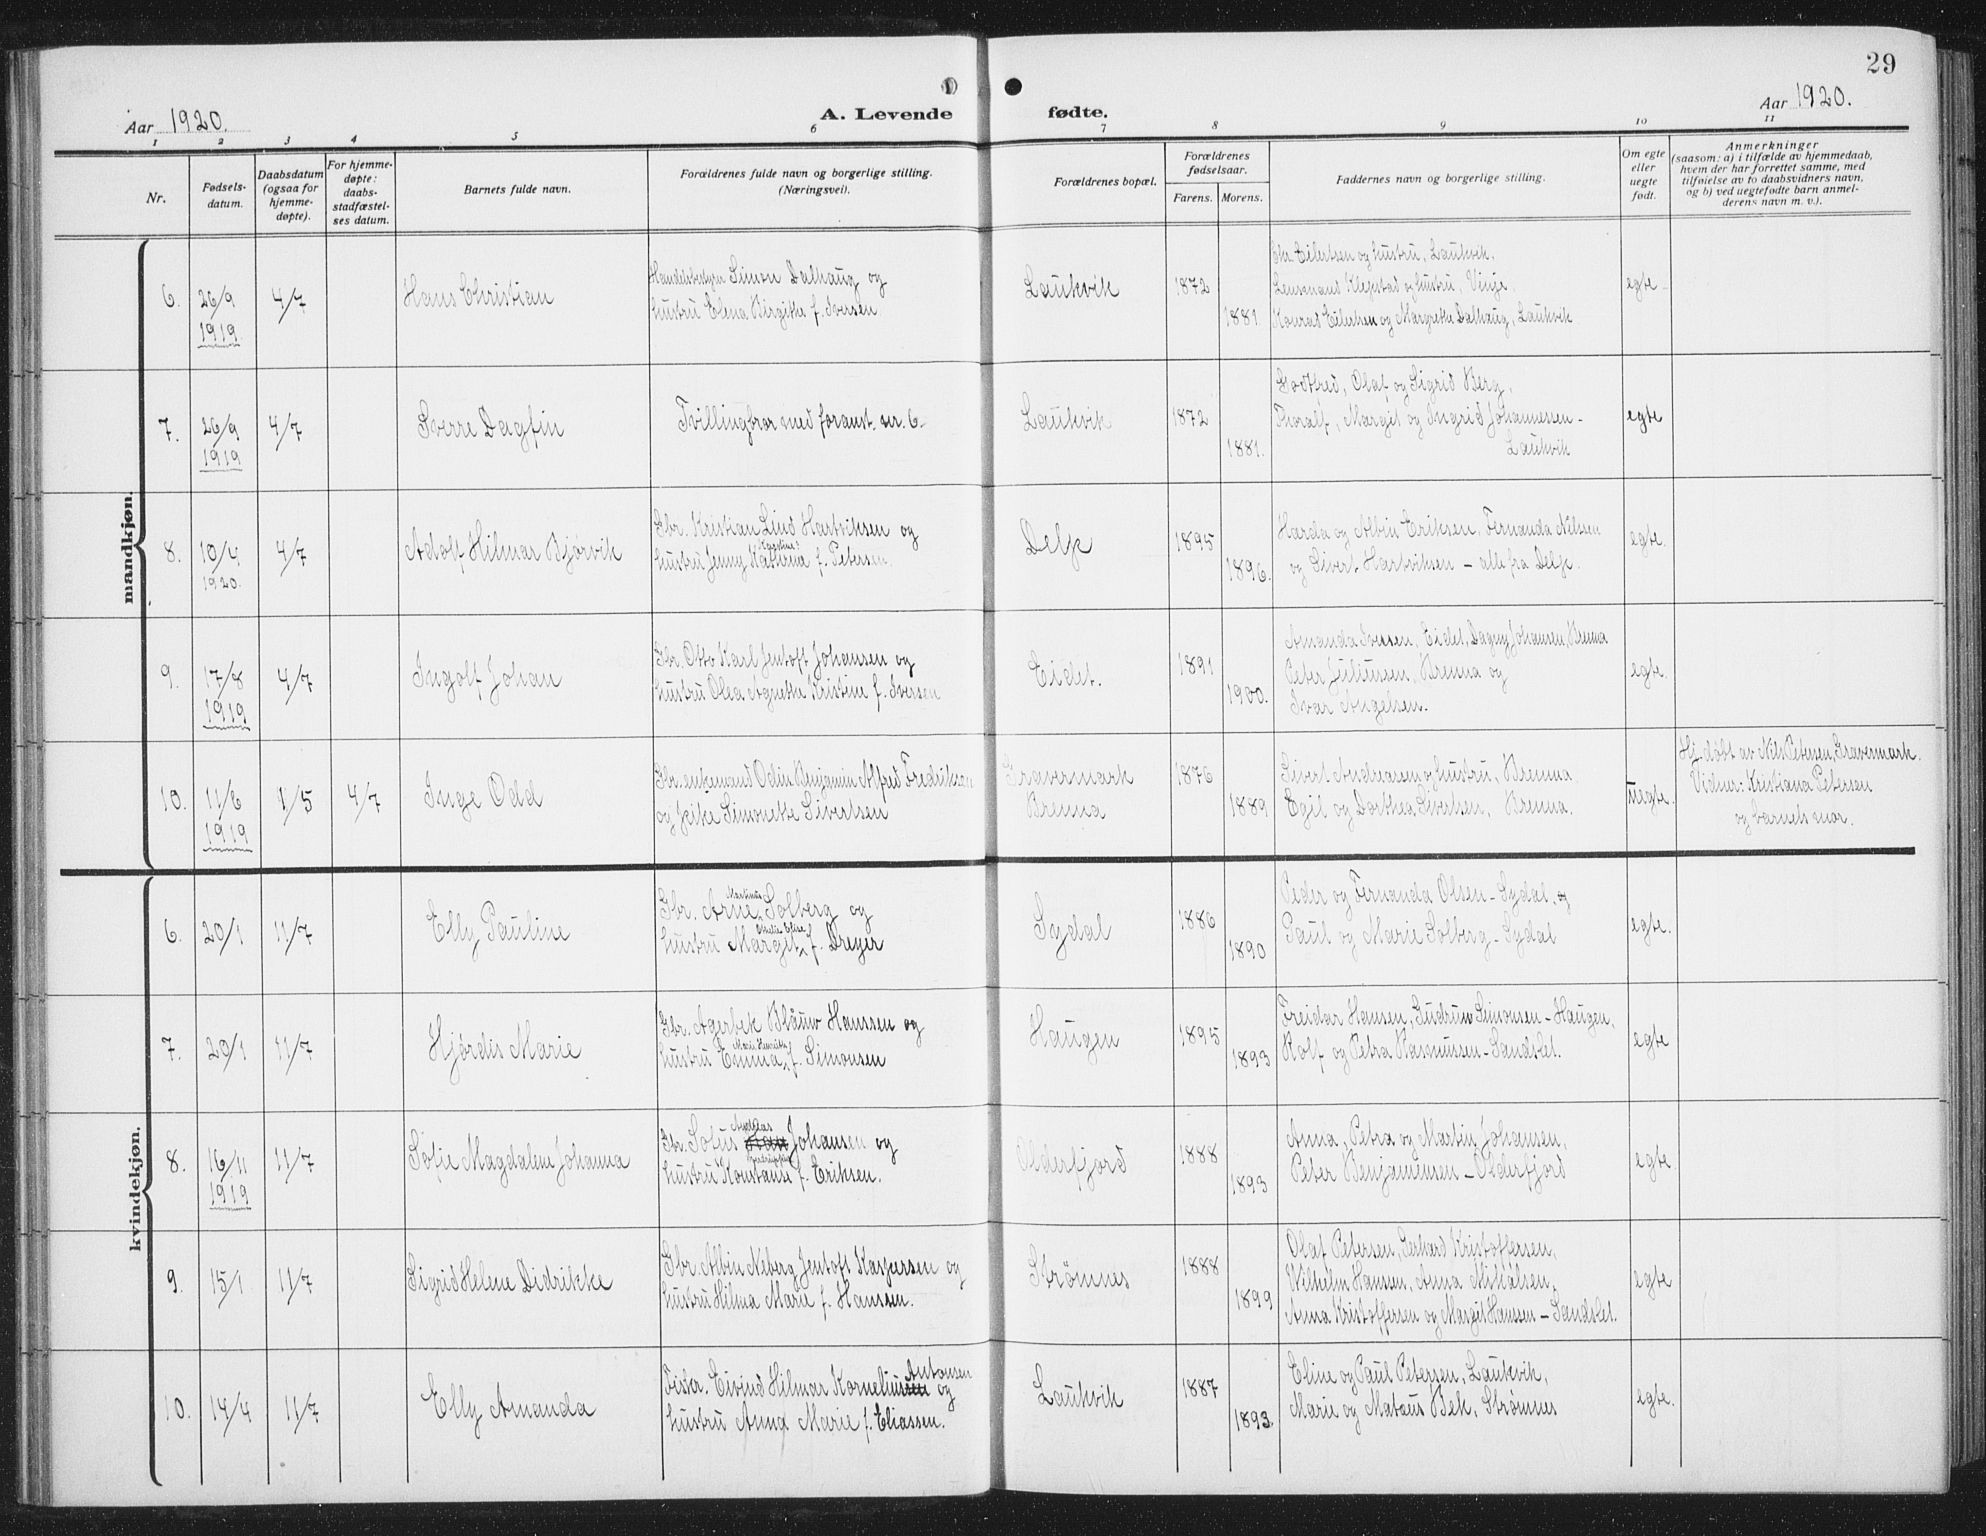 29
Aar 1920.
A. Levende fødte.
Aar 1920.
1 2 3 4 5 6 7 8 9 10 11
Nr.
Fødsels-
datum.
Daabsdatum
(ogsaa for
hjemme-
døpte).
For hjemme-
døpte:
daabs-
stadfæstel-
ses datum.
Barnets fulde navn.
Forældrenes fulde navn og borgerlige stilling.
(Næringsvei).
Forældrenes bopæl.
Forældrenes
fødselsaar.
Farens. Morens.
Faddernes navn og borgerlige stilling.
Om egte
eller
uegte
født.
Anmerkninger
(saasom: a) i tilfælde av hjemmedaab,
hvem der har forrettet samme, med
tilføielse av to daabsvidners navn,
og b) ved uegtefødte barn anmel-
derens navn m. v.).
mandkjøn.
6.
26/9
1919.
4/7
Hans Christian
Handelsbestyrer Simon Dalhaug og
hustru Elena Birgitte f. Iversen
Laukvik
1872
1881
Eilertsen og hustru, Laukvik,
Klepstad og hustru, Vinje.
Konrad Eilertsen og Margrethe Dalhaug, Laukvik
egte
7.
26/9
1919
4/7
Sverre Dagfin
Tvillingbror med foranst. nr. 6.
Laukvik
1872
1881.
Godtfred, Olaf og Sigrid Berg,
Thoralf, Margit og Ingrid Johannessen -
Laukvik
egte
8.
10/4
1920.
4/7
Adolf Hilmar Bjørvik
Gbr. Kristian Lind Hartviksen og
hustru Jenny Katrina f. Petersen.
Delp
1895
1896.
Harda og Albin Eriksen, Fernanda Nilsen
og Sivert Hartviksen - alle fra Delp.
egte.
9.
17/8
1919
4/7
Ingolf Johan
Gbr. Otto Karl Jentoft Johansen og
hustru Olea Agnethe Kristine f. Iversen
Eidet.
1891
1900.
Amanda Iversen, Eidet, Dagny Johansen, Brenna
Peter Juliussen, Brenna og
Ivar Angelsen.
egte.
10.
11/6
1919
1/5
4/7
Inge Odd
Gbr. enkemand Odin Benjamin Alfred Fredriksen
og pike Simonette Sivertsen
Gravermark
Brenna
1876
1889
Sivert Andreassen og hustru, Brenna.
Egil og Dorthea Sivertsen, Brenna.
uegte.
Hj. døbt av Nils Petersen, Gravermark.
Vidner: Kristiana Petersen
og barnets mor.
kvindekjøn.
6.
20/1
11/7
Elly Pauline
Martinus
Gbr. Arne Solberg og
Amalie Eline
hustru Margit f. Dreyer
Sydal
1886
1890
Peder og Fernanda Olsen - Sydal, og
Paul og Marie Solberg - Sydal
egte.
7.
20/1
11/7
Hjørdis Marie
Gbr. Agerbek Blauw Hanssen og
Marie Henrikke
hustru Emma f. Simonsen
Haugen
1895
1893
Freidar Hansen, Gudrun Simonsen - Haugen,
Rolf og Petra Rasmussen - Sandslet.
egte
8.
16/11
1919
11/7
Sofie Magdalene Johanna
Andreas
Gbr. Sofus Johansen og
hustru Konstanse f. Eriksen.
Olderfjord
1888
1893
Anna, Petra og Martin Johansen,
Peter Benjaminsen - Olderfjord
egte
9.
15/1
11/7
Sigrid Helene Didrikke
Gbr. Albin Neberg Jentoft Kaspersen og
hustru Hilma Marie f. Hanssen.
Strømnes
1888
1899
Olaf Petersen, Gerhard Kristoffersen,
Wilhelm Hansen, Anna Mikalsen,
Anna Kristoffersen og Margit Hansen - Sandslet.
egte
10.
14/4
11/7
Elly Amanda
Antonsen
Fisker. Eivind Hilmar Korneliussen og
hustru Anna Marie f. Eliassen.
Laukvik
1887
1893.
Eline og Paul Petersen, Laukvik,
Marie og Mataus Bek, Strømnes
egte.